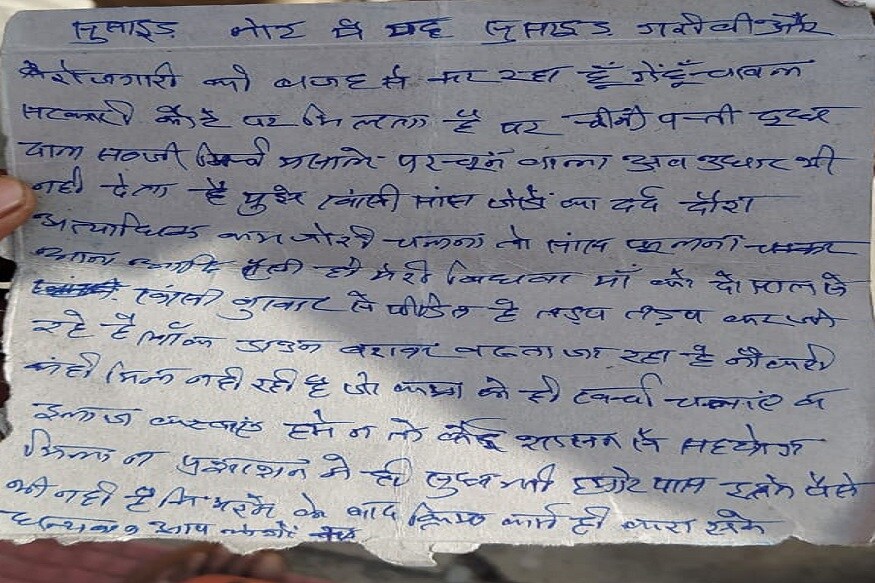 सुसाइड नोट में यह सुसाइड गरीबी और
बेरोजगारी की वजह से कर रहा हूँ गेंहूँ चावल
सरकारी कोटे पर मिलता है पर चीनी पत्ती दूध
दाल सब्जी मिर्च मसाले परचून वाला अब उधार भी
नही देता है मुझे खांसी सांस जोडों का दर्द दौरा
अत्याधिक कमजोरी चलना तो सांस फूलना चक्कर
आना आदि मेरी विधवा माँ भी दो साल से
खांसी बुखार से पीडित है तड़प तड़प कर जी
रहे है लॉक डाउन बराबर बढता जा रहा है नौकरी
कही मिल नही रही है जो काम को खर्चा चलाएं व
इलाज कराएं हमे न तो कोई शासन से सहयोग
मिला न प्रशासन ने ही सुध ली हमारे पास इतने पैसे
भी नही है कि मरने के बाद क्रिया कर्म ही करा सके
धन्यवाद आप